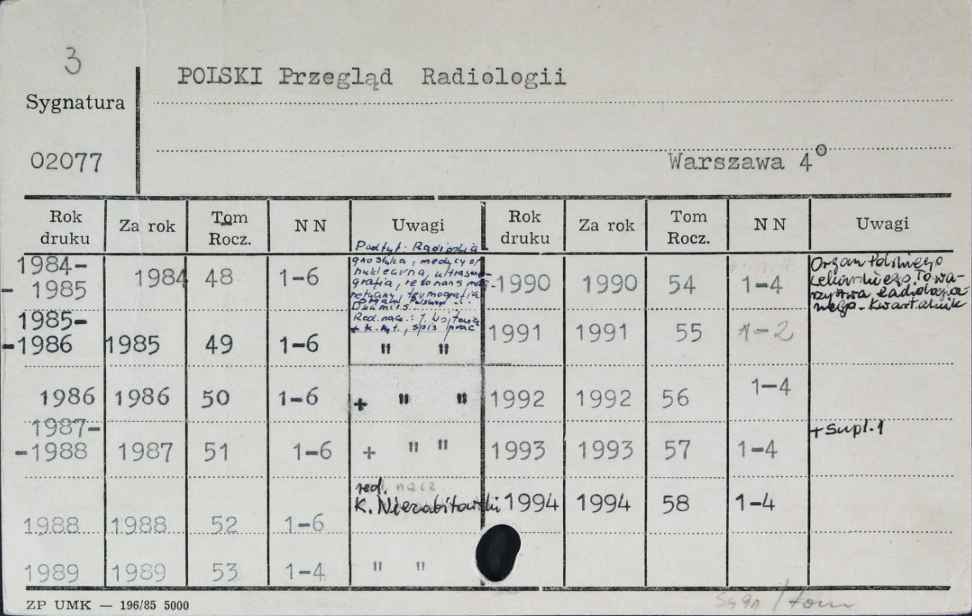 3
POLSKI Przegląd Radiologii
Sygnatura
02077
Warszawa 4°
Rok druku Za rok Tom Rocz. N N Uwagi Rok druku Za rok Tom Rocz. N N Uwagi
1984-
- 1985 1984 48 1-6 Podtyt: Radiodia
gnostyka, medycyna
nuklearna, ultrasono
grafia, rezonans mag
netyczny, termografia
Red. nacz.:
+ k. tyt., spis prac
1990 1990 54 1-4 Organ Polskiego
Lekarskiego Towa-
rzystwa Radiologicz
nego. Kwartalnik
1985-
-1986 1985 49 1-6 " " 1991 1991 55 1-2
1986 1986 50 1-6 + " " 1992 1992 56 1-4
1987-
-1988 1987 51 1-6 + " " 1993 1993 57 1-4 + Supl. 1
1988 1988 52 1-6 red. nacz
K. Niezabitowski 1994 1994 58 1-4
1989 1989 53 1-4 " "
ZP UMK — 196/85 5000
Sygn / tom